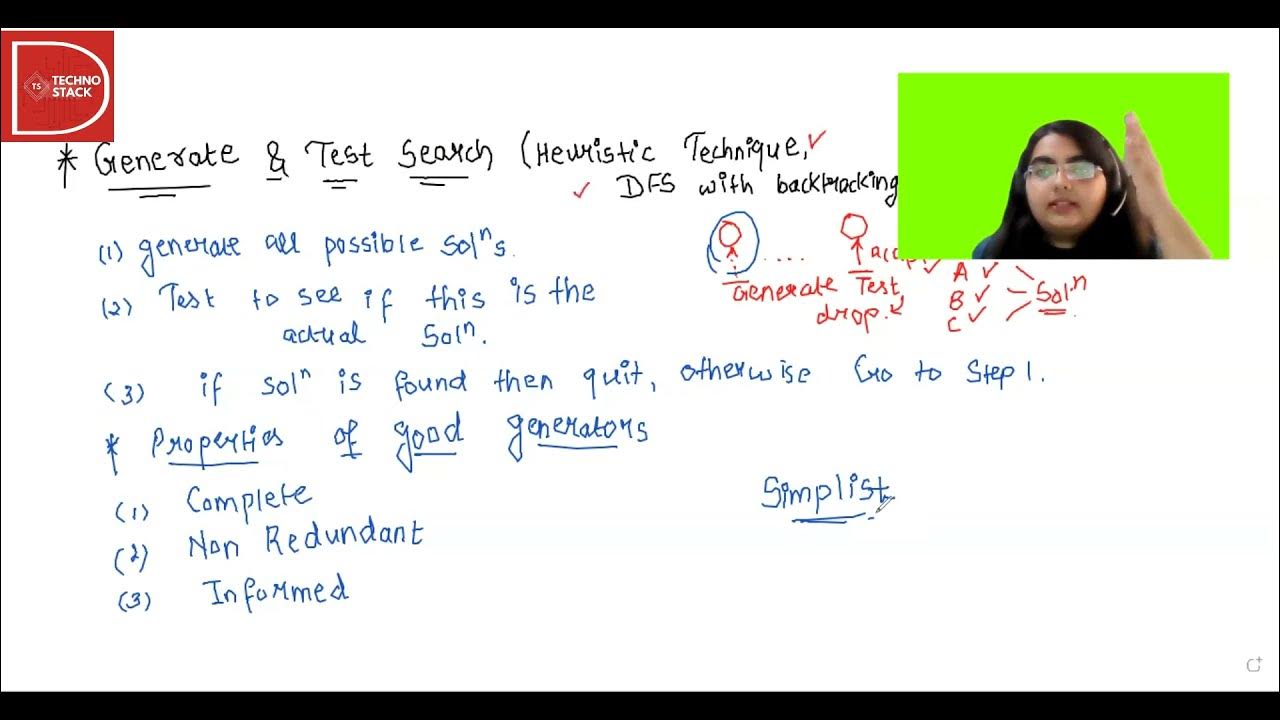 TS
TECHNO
STACK
* Generate & Test Search (Heuristic Technique,
DFS with backtracking
(1) generate all possible solⁿs.
(2) Test to see if this is the
actual Solⁿ.
.... 
Generate Test,
drop.
A
B
C
Solⁿ
(3) if solⁿ is found then quit, otherwise Go to Step 1.
* Properties of good generators
(1) Complete
(2) Non Redundant
(3) Informed
Simplist